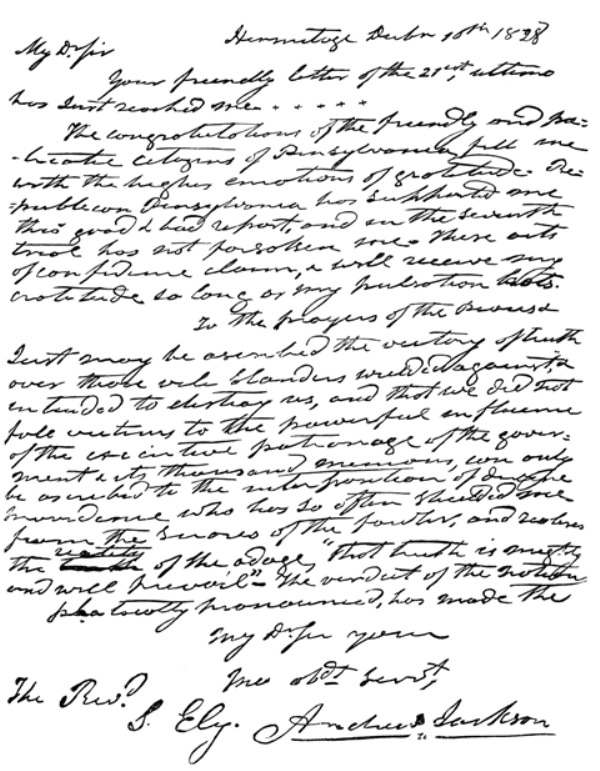 Hermitage Decbr 10th 1828
My Dr Sir
Your friendly letter of the 21st, ultimo
has Just reached me . . . . . .
The congratulations of the friendly and pa=
-triotic citizens of Pensylvania fill me
with the highes emotions of gratitude. Re=
=publicon Pensylvania has supported me
thro good & bad report, and in the seventh
trial has not forsaken me. These acts
of confidence claim, & will receive my
gratitude so long as my pulsation beats.
To the prayers of the pious &
Just may be ascribed the victory of truth
over those vile slanders wielded against, &
intended to destroy us, and that we did not
fall victims to the powerful influence
of the executive patronage of the gover=
ment & its thousand minions, can only
be ascribed to the interposition of divine
providence who has so often shielded me
from the snares of the fowler, and realises
the reality of the adage, "that truth is mighty
and will prevail" - The verdict of the nation
locally pronounced, has made the
My Dr Sir your
Mo obdt servt,
The Revd.
S. Ely.
Andrew Jackson